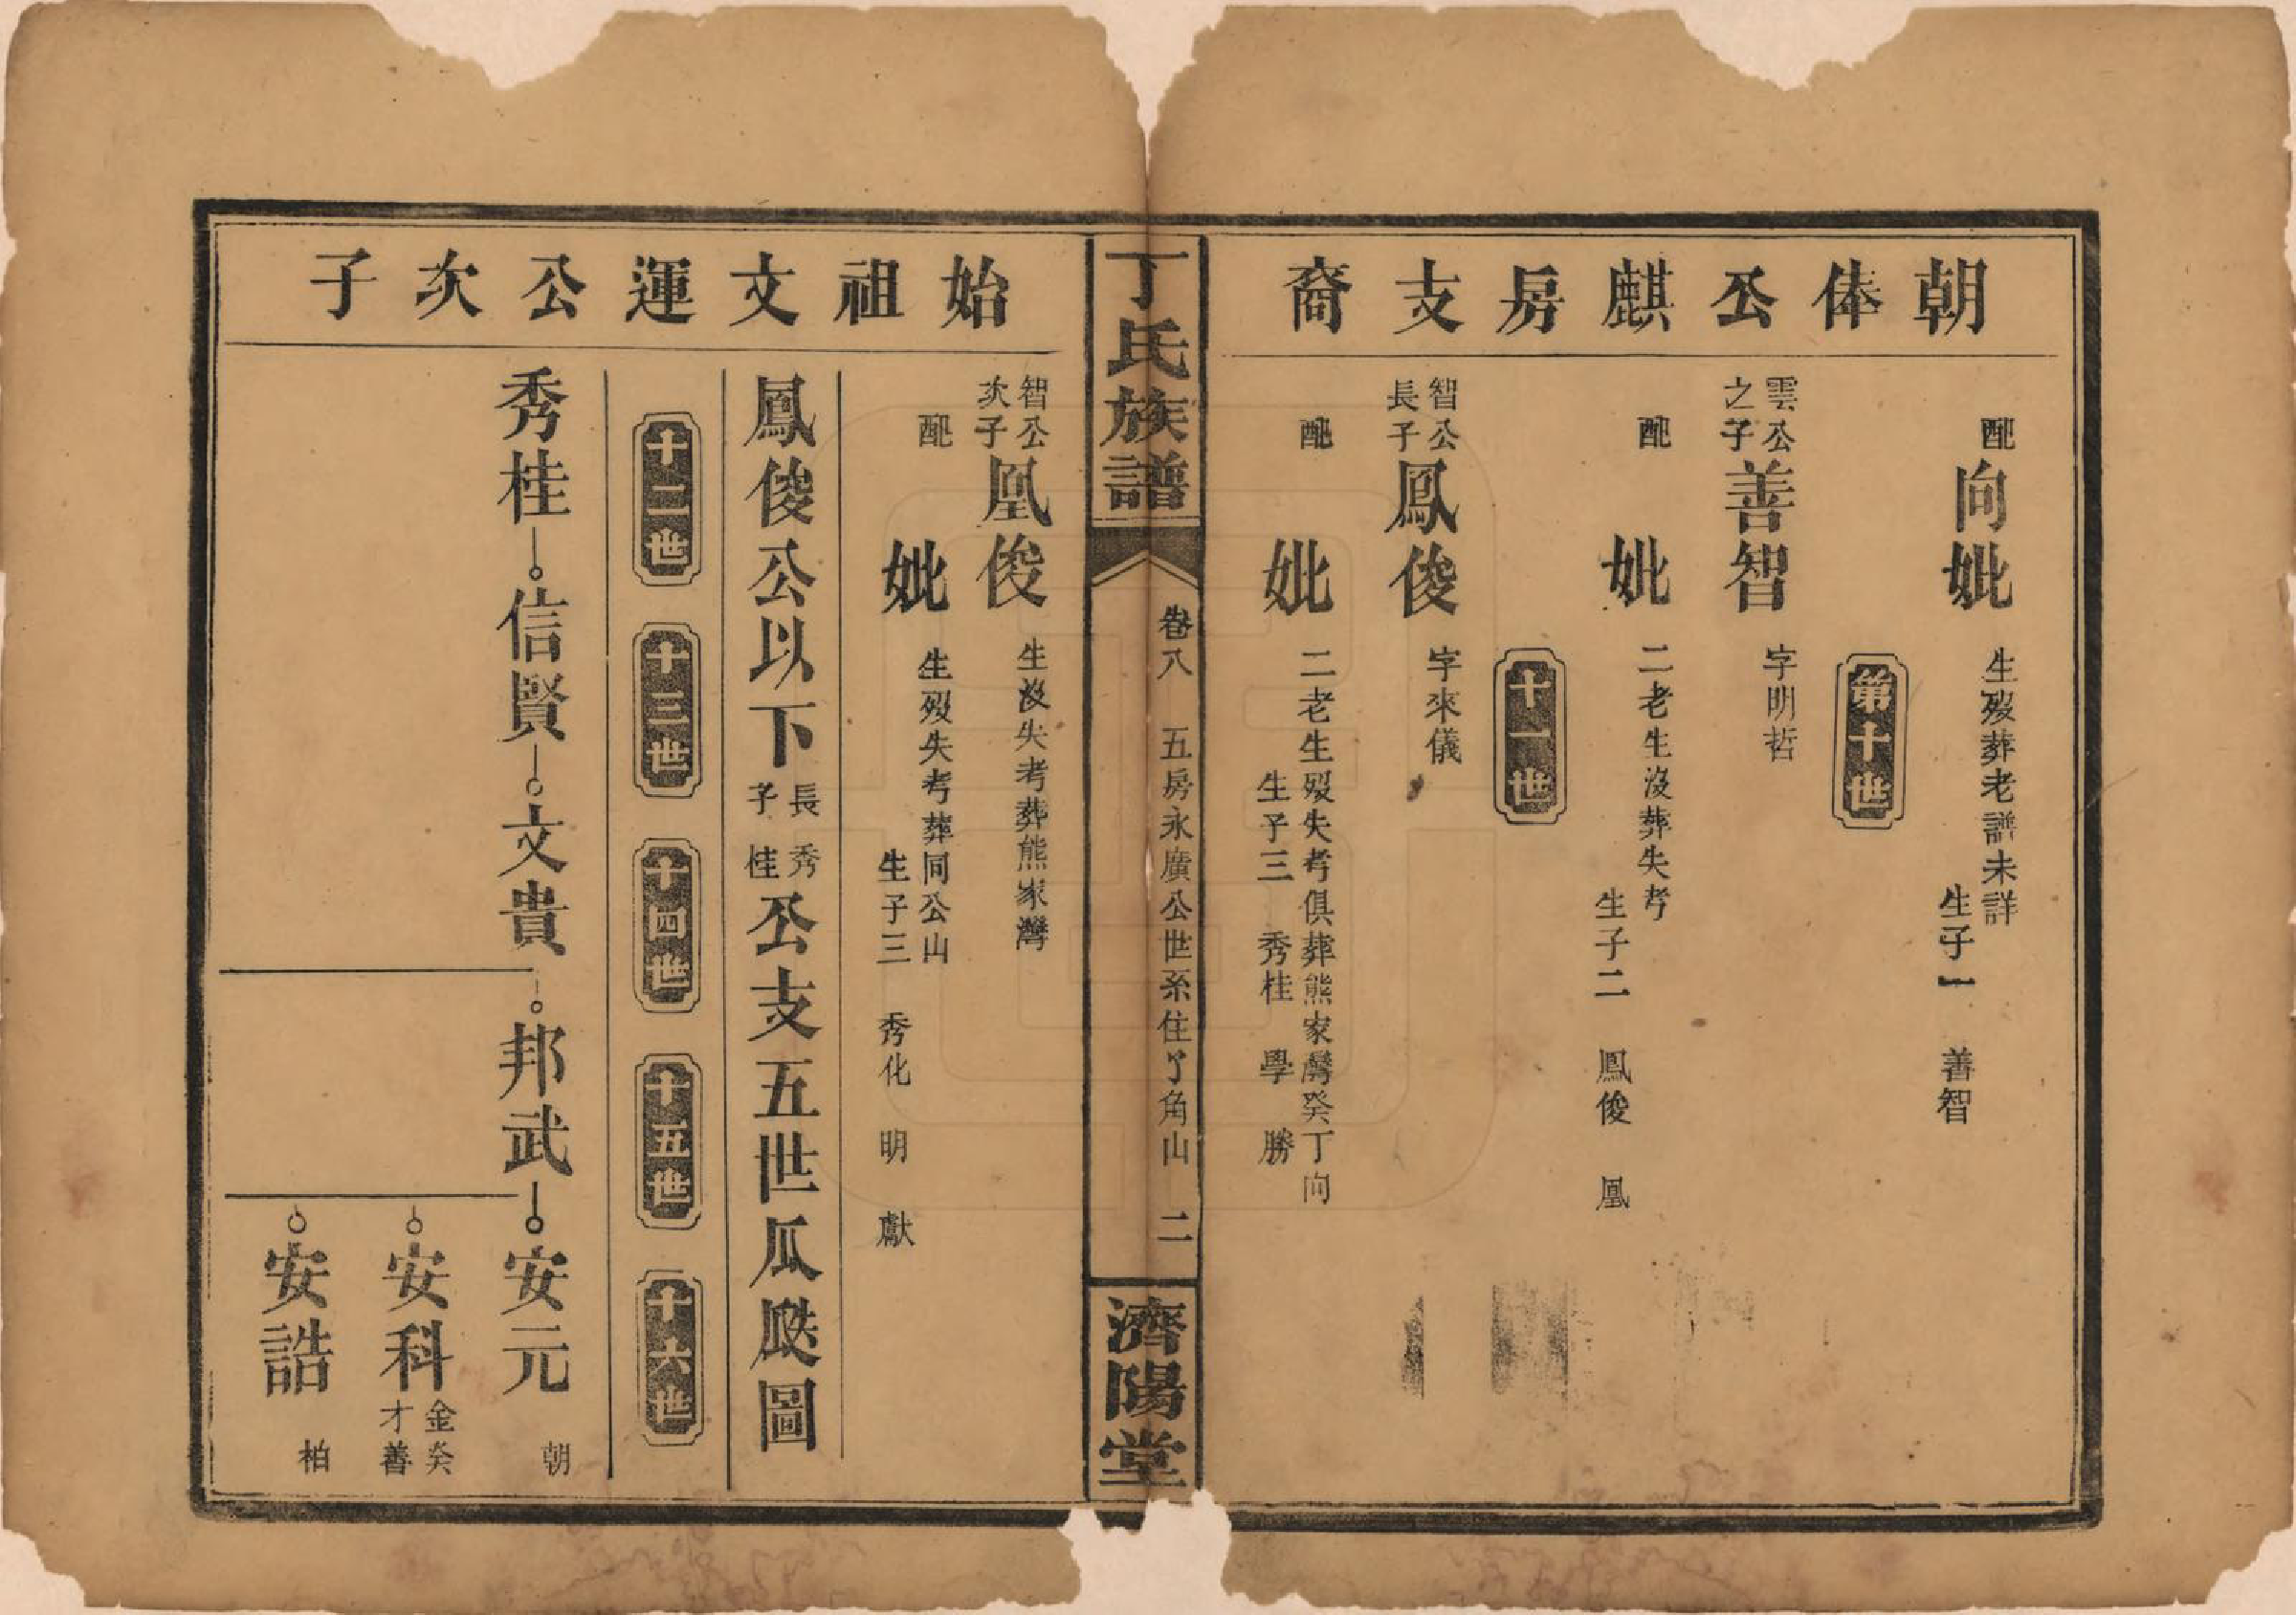 朝俸公麒房支裔
配向妣 生歿葬老譜未詳
生子一 善智
第十世
雲公之子善智 字明哲
配 妣 二老生没葬失考
生子二 鳳俊 凰
十一世
智公長子鳳俊 字來儀
配 妣 二老生歿失考俱葬熊家灣癸丁向
生子三 秀桂 學 勝
丁氏族譜
卷八 五房永廣公世系住丫角山 二
濟陽堂
始祖文運公次子
智公次子凰俊 生没失考葬熊家灣
配 妣 生歿失考葬同公山
生子三 秀化 明 獻
鳳俊公以下長子秀桂公支五世瓜瓞圖
十二世 十三世 十四世 十五世 十六世
秀桂 信賢 文貴 邦武 安元 朝
安科 金癸 才善
安誥 柏